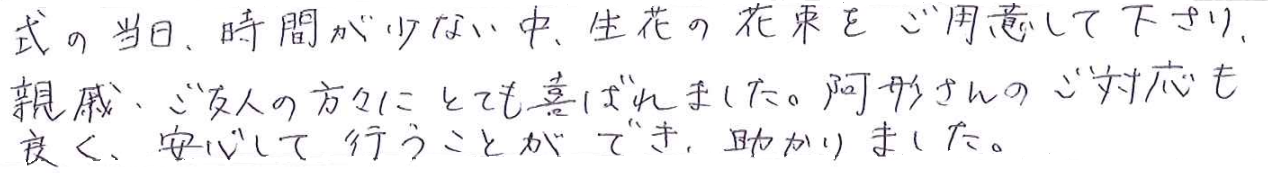 式の当日、時間が少ない中、生花の花束をご用意して下さり、
親戚、ご友人の方々にとても喜ばれました。阿形さんのご対応も
良く、安心して行うことができ、助かりました。